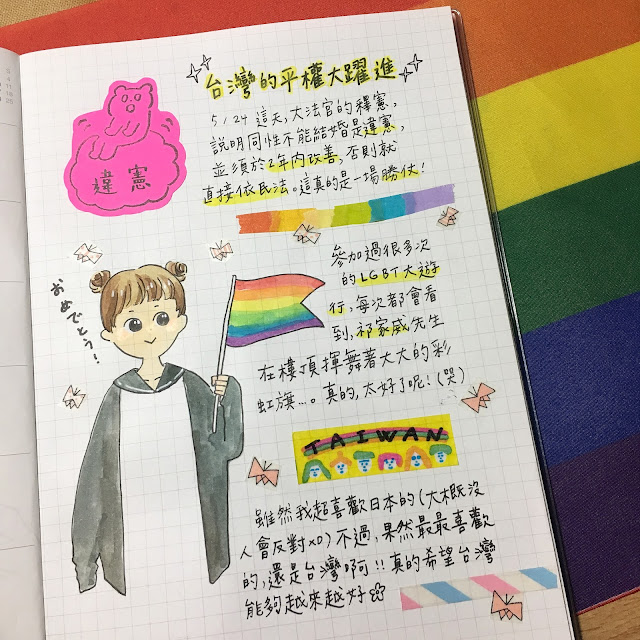 台灣的平權大躍進
5/24 這天,大法官的釋憲,
說明同性不能結婚是違憲,
並須於2年內改善,否則就
直接依民法。這真的是一場勝仗!
違憲
おめでとう!
參加過很多次
的LGBT大遊
行,每次都會看
到,祁家威先生
在樓頂揮舞著大大的彩
虹旗...。真的,太好了呢!(哭)
TAIWAN
雖然我超喜歡日本的(大概沒
人會反對xD)不過,果然最最喜歡
的,還是台灣啊!!真的希望台灣
能夠越來越好